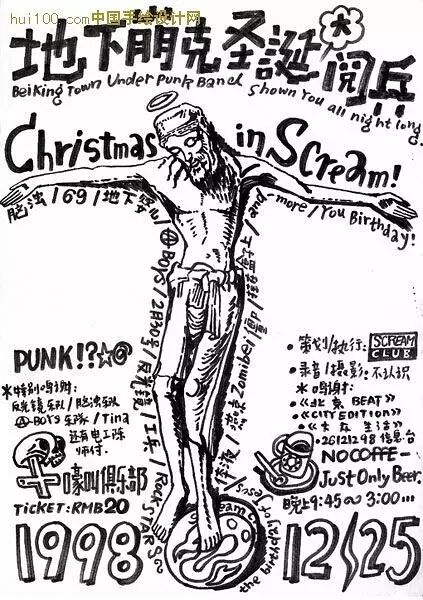 hui100.com中国手绘设计网
地下崩克圣誕大閲兵
BeiKing Town Under Punk Band Shown You all night long.
Christmas in Scream!
脑浊/69/地下婴儿/
and more/You Birthday!
Ⓐ BOYS/2月30号/反光镜/工兵/ROCKSTARS
PUNK!?☆@
※特别鸣谢:
反光镜乐队/脑浊乐队
Ⓐ BOYS乐队/Tina
还有电工陈
师付.
嚎叫俱乐部
TICKET:RMB20
1998
•策划/执行: SCREAM CLUB
•录音/摄影:不认识
※鸣谢:
•《北京BEAT》
•《CITY EDITION》
•《大众生活》
•26121298信息台
NO COFFE-
Just Only Beer.
晚上9:45~3:00...
the birthday of
12/25